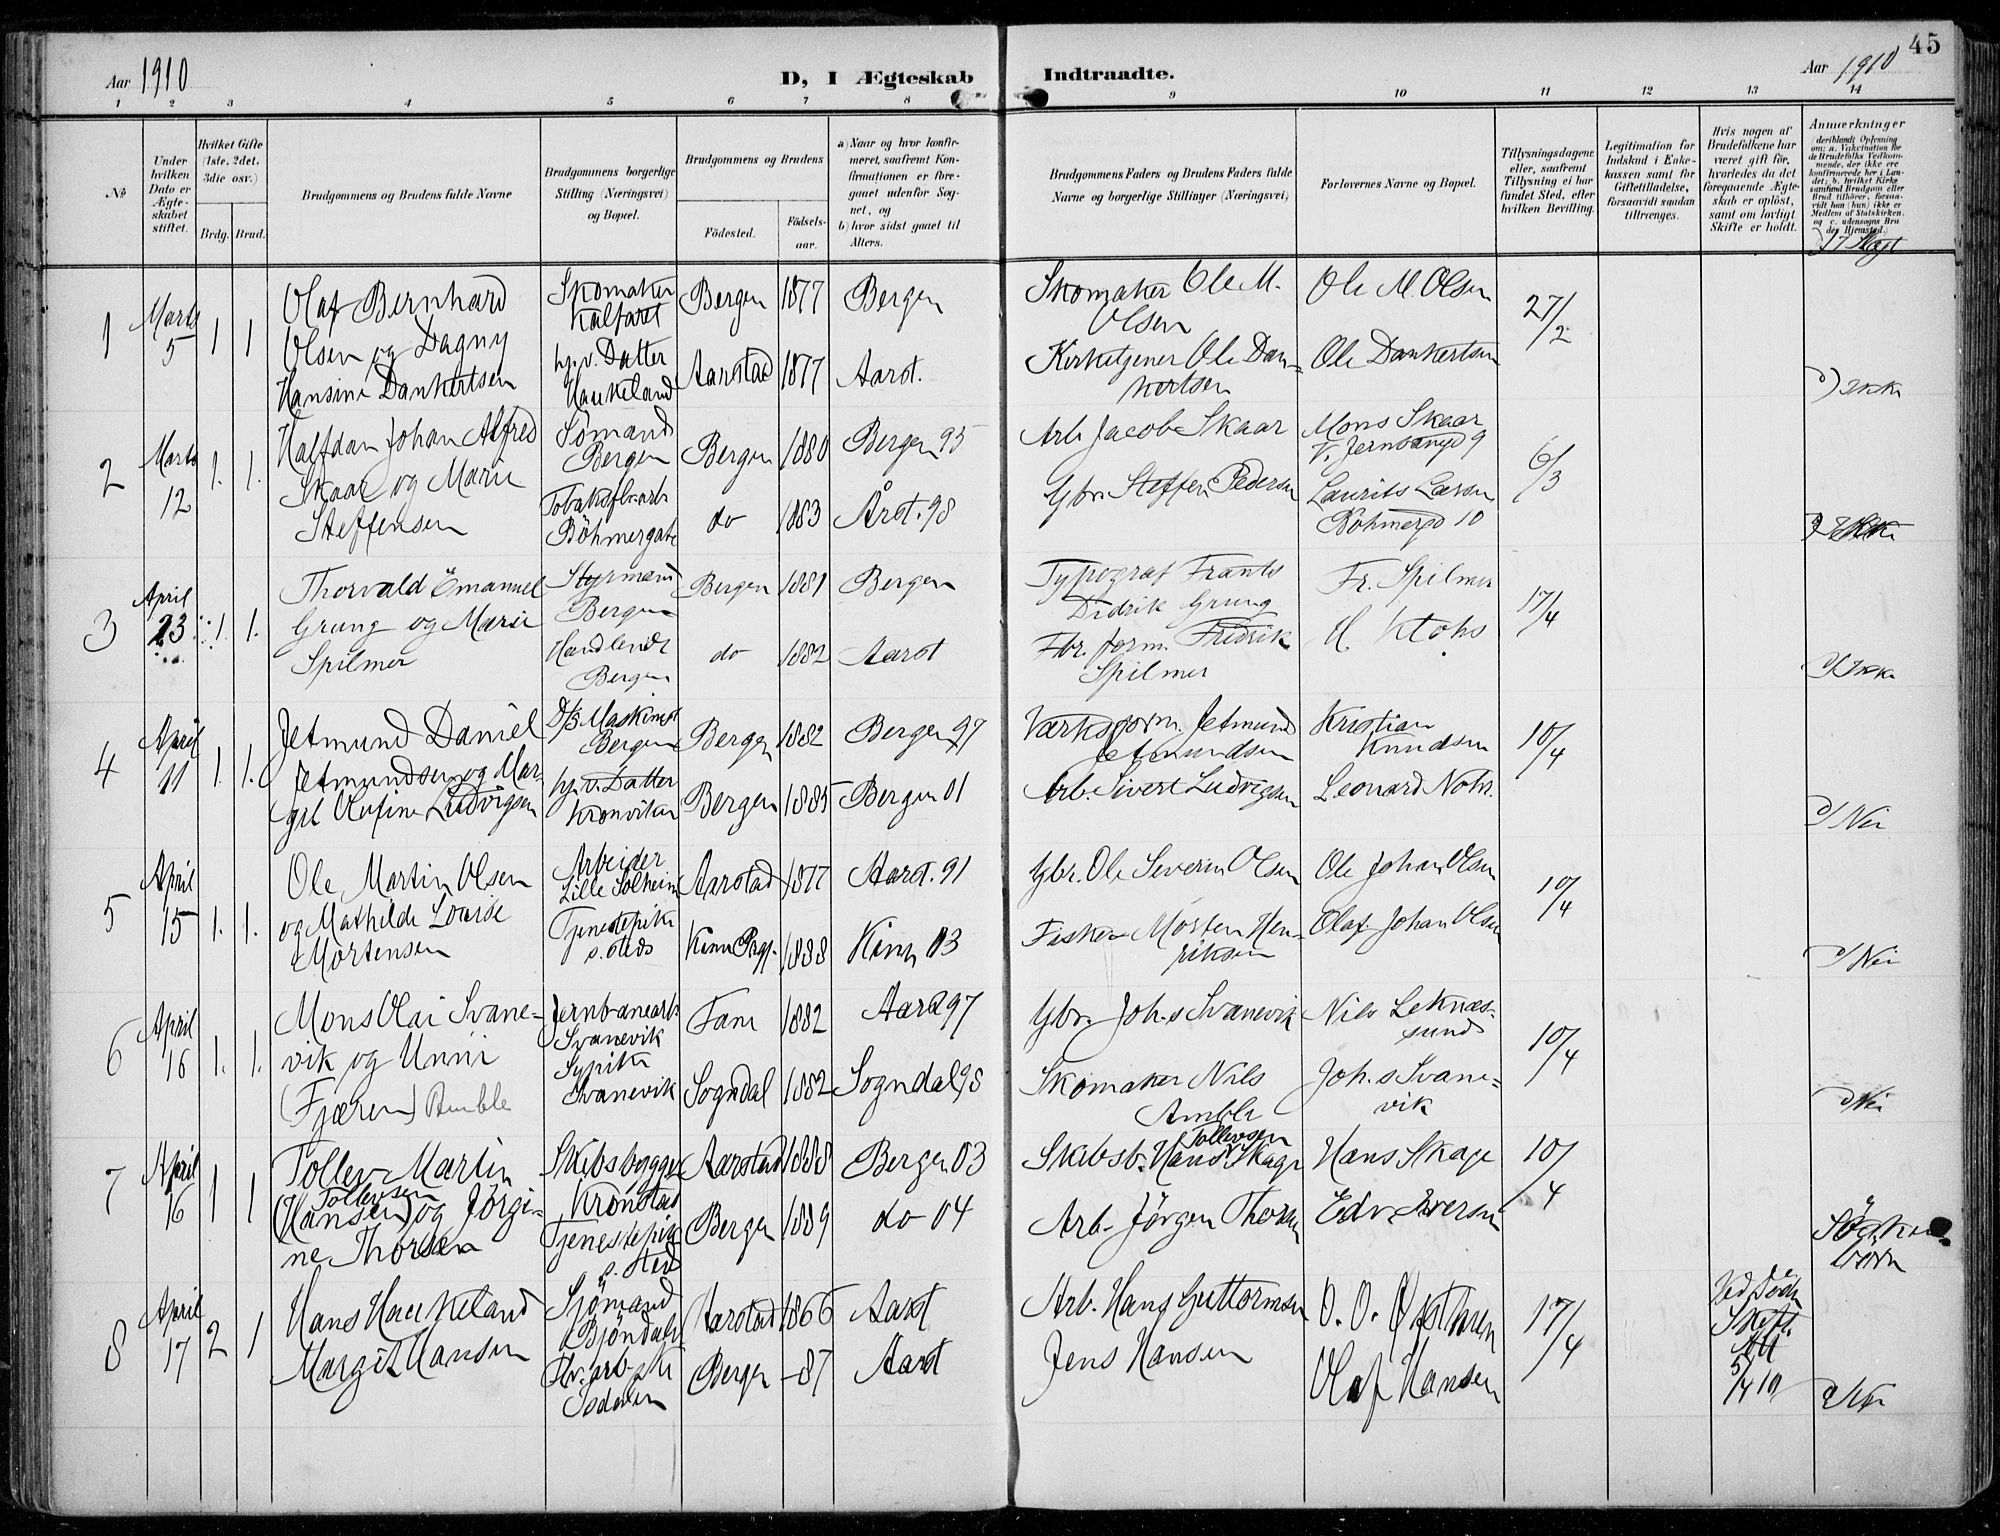 45
Aar 1910
D, I Ægteskab Indtraadte.
Aar 1910
1 2 3 4 5 6 7 8 9 10 11 12 13 14
No
Under hvilken Dato er Ægteskabet stiftet.
Hvilket Gifte (1ste, 2det, 3die osv.)
Brdg. Brud.
Brudgommens og Brudens fulde Navne
Brudgommens borgerlige Stilling (Næringsvei) og Bopæl.
Brudgommens og Brudens
Födested.
Födselsaar.
a) Naar og hvor konfirmeret, saafremt Konfirmationen er foregaaet udenfor Sognet, og
b) hvor sidst gaaet til Alters.
Brudgommens Faders og Brudens Faders fulde Navne og borgerlige Stillinger (Næringsvei)
Forlovernes Navne og Bopæl.
Tillysningsdagene eller, saafremt Tillysning ei har fundet Sted, efter hvilken Bevilling.
Legitimation for Indskud i Enkekassen samt for Giftetilladelse, forsaavidt saadan tiltrænges.
Hvis nogen af Brudefolkene har været gift för, hvorledes da det foregaaende Ægteskab er oplöst, samt om lovligt Skifte er holdt.
Anmærkninger
(deriblandt Oplysning om: a. Vakcination for de Brudefolks Vedkommende, der ikke ere konfirmerede her i Landet; b. hvilket Kirkesamfund Brudgom eller Brud tilhörer, forsaavidt han (hun) ikke er Medlem af Statskirken, og c. udensogns Brudes Hjemsted.)
1 Marts 5 1 1
Olaf Bernhard
Olsen og Dagny
Hansine Dankertsen
Skomaker
Kalfaret
hj.v. Datter
Haukeland
Bergen 1877 Bergen
Aarstad 1877 Aarst.
Skomaker Ole M.
Olsen
Kirketjener Ole Dankertsen
Ole M. Olsen
Ole Dankertsen
27/2
2 Marts 12 1. 1.
Halfdan Johan Alfred
Skaar og Marie
Steffensen
Sömand
Bergen
Tobaksfbr.arb
Böhmergate
Bergen 1880 Bergen 95
do 1883 Årst. 98
Arb. Jacob Skaar
Gbr. Steffen Pedersen
Mons Skaar
Laurits Larsen
Böhmergd 10
6/3
3 April 23 1. 1.
Thorvald Emanuel
Grung og Marie
Spilmer
Styrmand
Bergen
Handlende
Bergen
Bergen 1881 Bergen
do 1882 Aarst
Typograf Frants
Didrik Grung
Fbr. form. Fredrik
Spilmer
Fr. Spilmer
17/4
4 April 11 1. 1.
Jetmund Daniel
Jetmundsen og Margit
Olufine Ludvigsen
D/S Maskinist
Bergen
hj.v. Datter
Kronviken
Bergen 1882 Bergen 97
Bergen 1885 Bergen 01
Værksform. Jetmund
Jetmundsen
Arb. Sivert Ludvigsen
Kristian
Knudsen
10/4
Nei
5 April 15 1. 1.
Ole Martin Olsen
og Mathilde Louise
Mortensen
Arbeider
Lille Solheim
Tjenestepike
s. steds
Aarstad 1877 Aarst. 91
Kinn 1888 Kinn 03
Gbr. Ole Severin Olsen
Fisker Morten Henriksen
Ole Johan Olsen
Olaf Johan Olsen
10/4
Nei
6 April 16 1. 1.
Mons Olai Svanevik
og Unni
(Fjæren) Amble
Jernbanearb
Svanevik
Sypike
Svanevik
Fane 1882 Aarst 97
Sogndal 1882 Sogndal 98
Gbr. Joh.s Svanevik
Skomaker Nils
Amble
Nils Leknessund
Joh.s Svanevik
10/4
Nei
7 April 16 1 1
Tollev Martin
Tollevsen
(Hansen) og Jörgine
Thorsen
Skibsbygger
Kronstad
Tjenestepike
s. sted
Aarstad 1888 Bergen 03
Bergen 1889 do 04
Skibsb. Hans Tollevsen Skage
Arb. Jörgen Thorsen
Hans Skage
Edv. Iversen
10/4
Söskenbörn
8 April 17 2 1
Hans Haukeland
Margit Hansen
Sjömand
Isdalen
Aarstad 1866 Aarst
Bergen -87 Aarst
Arb. Hans Guttormsen
Jens Hansen
Olaf Hansen
17/4
Ved Död
5/4 10
Nei